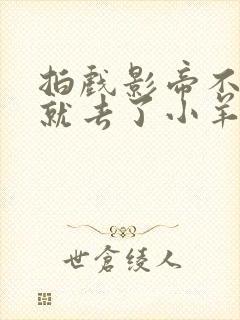 拍戏影帝不
就去了小羊
世倉绫人